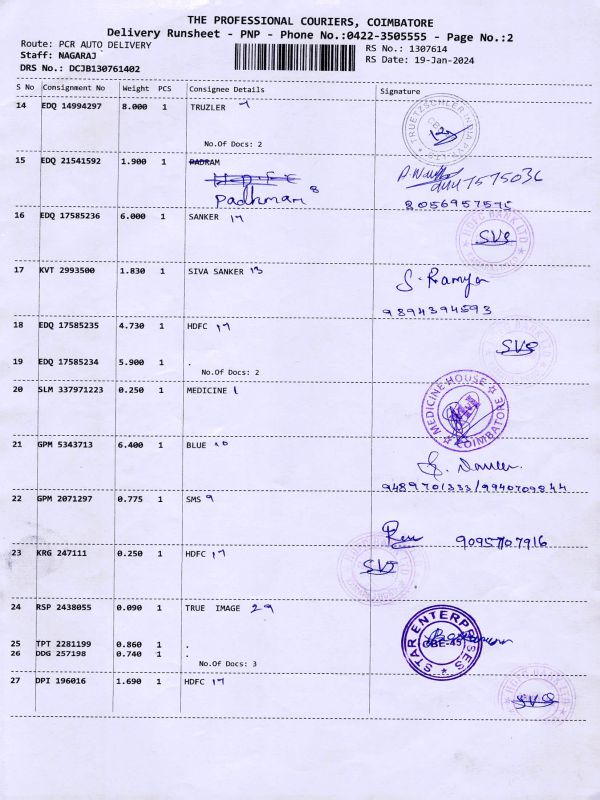 THE PROFESSIONAL COURIERS, COIMBATORE
Delivery Runsheet - PNP - Phone No.:0422-3505555 - Page No.:2
Route: PCR AUTO DELIVERY RS No.: 1307614
Staff: NAGARAJ RS Date: 19-Jan-2024
DRS No.: DCJB130761402
S No Consignment No Weight PCS Consignee Details Signature
14 EDQ 14994297 8.000 1 TRUZLER
No.Of Docs: 2
15 EDQ 21541592 1.900 1 PADRAM
Padhman 8
8056957575
16 EDQ 17585236 6.000 1 SANKER 17
SVS
17 KVT 2993500 1.830 1 SIVA SANKER 13
S. Ramya
9894394593
18 EDQ 17585235 4.730 1 HDFC 17
SVS
19 EDQ 17585234 5.900 1 .
No.Of Docs: 2
20 SLM 337971223 0.250 1 MEDICINE 1
MEDICINE HOUSE COIMBATORE
21 GPM 5343713 6.400 1 BLUE 10
9489701333/9940709844
22 GPM 2071297 0.775 1 SMS 9
9095707916
23 KRG 247111 0.250 1 HDFC 17
SVS
24 RSP 2438055 0.090 1 TRUE IMAGE 29
STAR ENTERPRISES
CBE-45
25 TPT 2281199 0.860 1 .
26 DDG 257198 0.740 1 .
No.Of Docs: 3
27 DPI 196016 1.690 1 HDFC 17
SVS